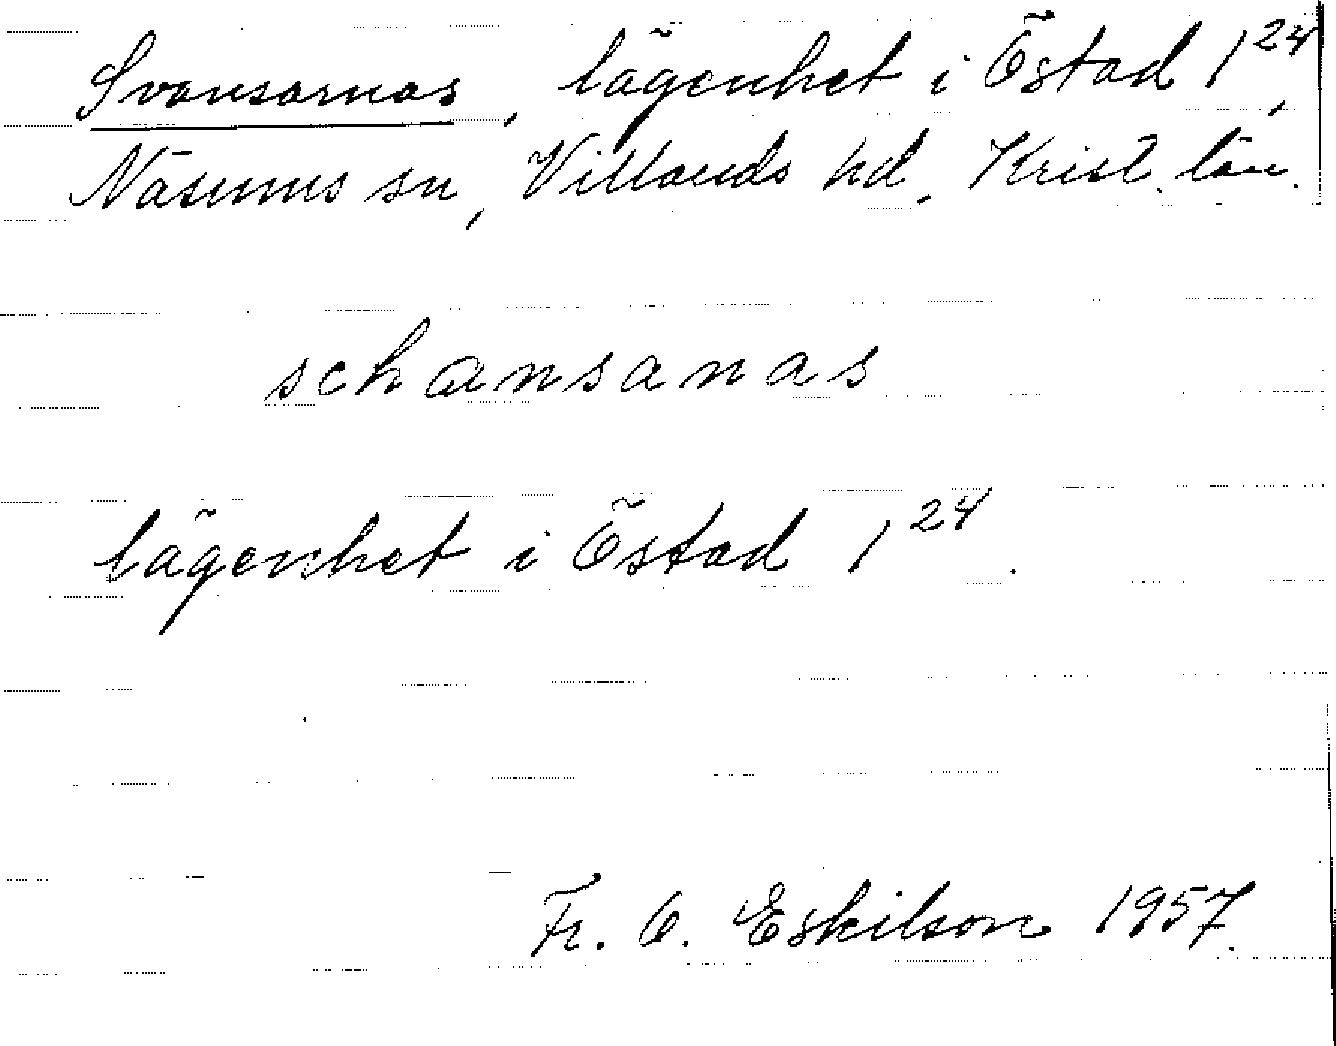 Svansarnas, lägenhet i Östad 1²⁴,
Näsums sn, Villands hd, Krist. län.
schansanas
lägenhet i Östad 1²⁴.
Fr. O. Eskilson 1957.